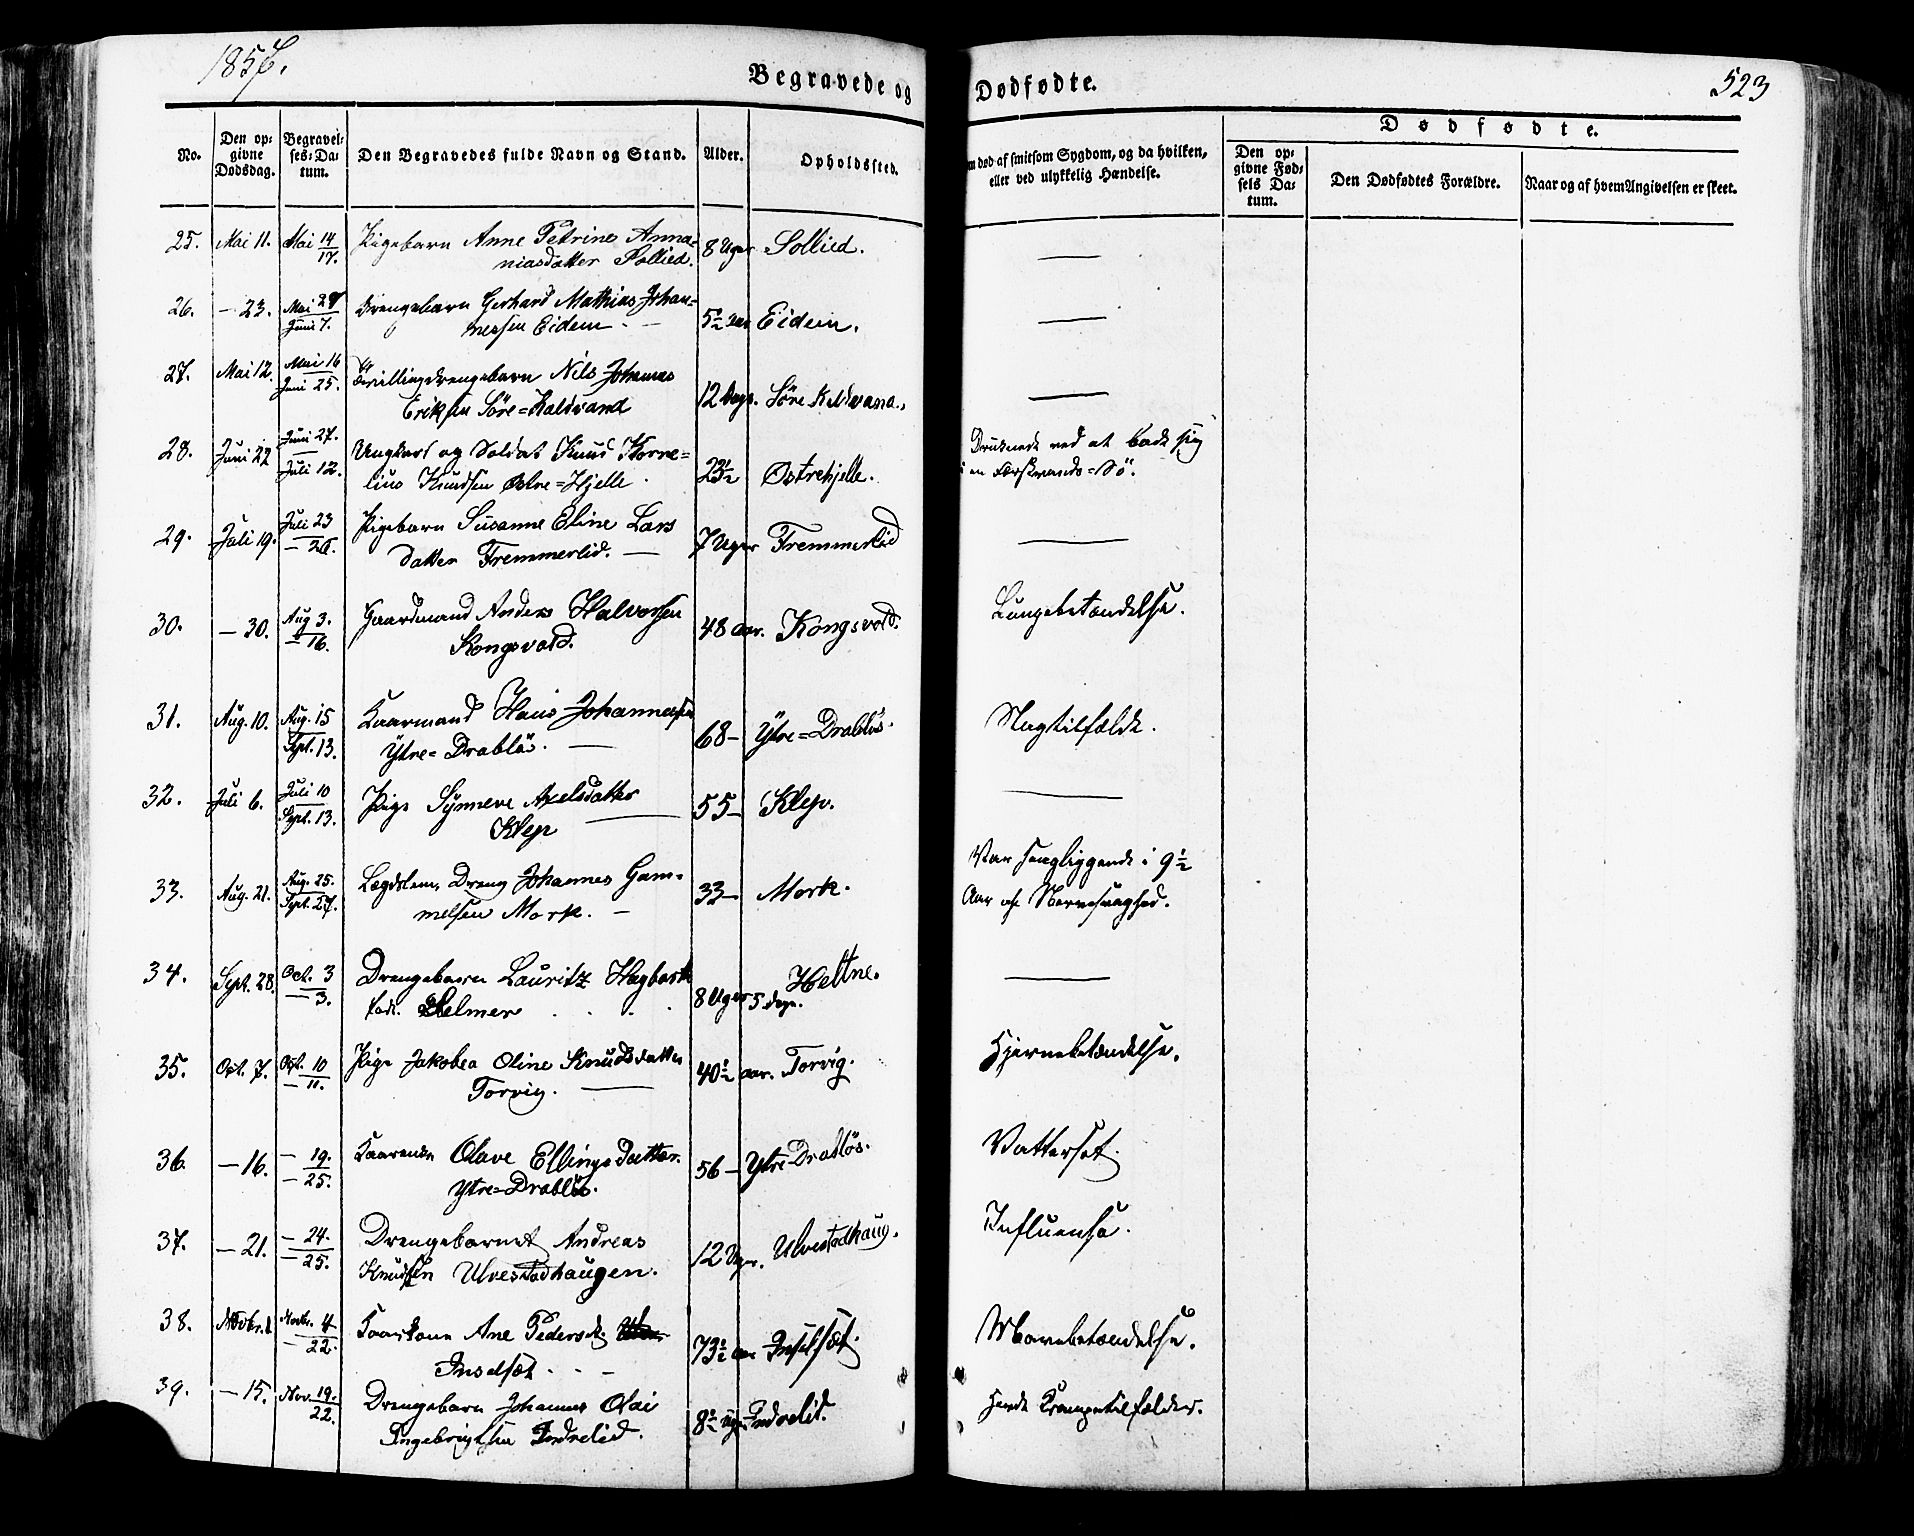 1857.
Begravede og Dødfødte.
523
No.
Den opgivne Dødsdag.
Begravelses-Datum.
Den Begravedes fulde Navn og Stand.
Alder.
Opholdssted.
m død af smitsom Sygdom, og da hvilken, eller ved ulykkelig Hændelse.
Dødfødte.
Den opgivne Fødsels Datum.
Den Dødfødtes Forældre.
Naar og af hvem Angivelsen er skeet.
25. Mai 11. Mai 14/17. Pigebarn Anne Petrine Anna=
niasdatter Sollied. 8 Uger Sollied. —
26. — 23. Mai Juni 7. Drengebarn Gerhard Mathias Johan=
nessen Eidem. — 5½ Eidem. —
27. Mai 12. Mai 16 Juni 25. Tvillingdrengebarn Nils Johannes
Eriksen Söre= 12 Dage. Söre —
28. Juni 22 Juni 27. Juli 12. Ungkarl og Soldat Knud Korne=
lius Knudsen Østre=Hjelle. 23½ Østrehjelle. Druknede ved at bade sig
i en Færskvands=Sö.
29. Juli 19. Juli 23 — 26. Pigebarn Susanne Eline Lars
datter Fremmerlid. — 7 Uger Fremmerlid —
30. — 30. Aug 3. — 16. Gaardmand Anders Halvorsen
Kongsvold. 48 aar. Kongsvold. Lungebetændelse.
31. Aug. 10. Aug. 15 Sept. 13. Kaarmand Hans Johannessen
Ytre=Drablös. — 68— Ytre=Drablös. Slagtilfælde.
32. Juli 6. Juli 10 Sept. 13. Pige Synneve Axelsdatter
Klep — 55— Klep. —
33. Aug. 21. Aug. 25. Sept. 27. Lægdslem, Dreng Johannes Gam=
melsen Mork. — 33— Mork. Var sengliggende i 9½
Aar af Nervesvaghed.
34. Sept. 28. Oct. 3 — 3. Drengebarn Lauritz Hagbart
Helmer 8 Uger 5 Dage. Heltne. —
35. Oct. 7. Oct. 10 — 11. Pige Jakobea Oline Knudsdatter
Torvig. — 40½ aar. Torvig. Hjernebetændelse.
36. — 16. — 19. — 25. Olave Ellingsdatter.
Ytre=Drablös. 56 — Ytre Drablös. Vattersot.
37. — 21. — 24. — 25. Drengebarnet Andreas
Knudsen Ulvestadhaugen. 12 Uger. Ulvestadhaug. Influensa.
38. Novbr. 1. Novbr. 4 — 22. Kaarkone Ane Pedersd.
Inselset. . . — 73½ aar Inselset. Mavebetændelse.
39. — 15. Nov. 19. 22. Drengebarn Johannes Olai
Ingebrigtsen Indrelid. 8½ Uger Indrelid. Krampetilfælder.